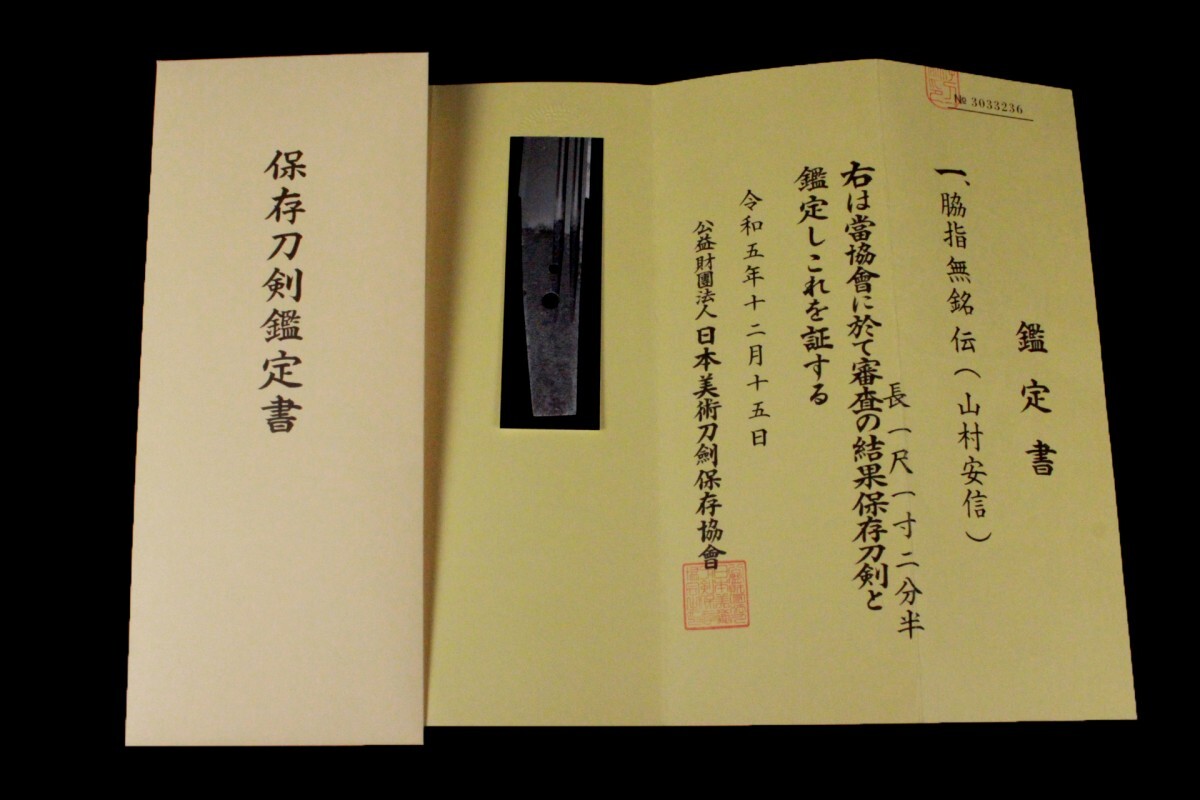 保存刀剣鑑定書
№ 3033236
鑑定書
一、脇指 無銘 伝(山村安信)
長一尺一寸二分半
右は當協會に於て審査の結果保存刀剣と
鑑定しこれを証する
令和五年十二月十五日
公益財團法人 日本美術刀劍保存協會